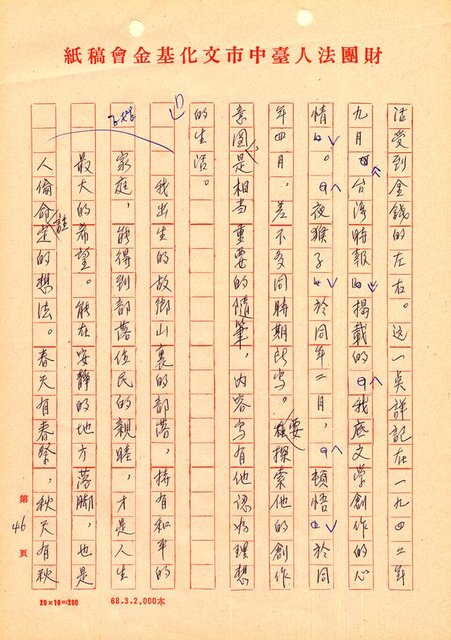 財團法人臺中市文化基金會稿紙
活受到金錢的左右。这一点詳記在一九四二年
九月「台湾時報」揭載的「我底文学創作的心
情」。「夜猴子」於同年二月,「頓悟」於同
年四月,差不多同時期所写。要探索他的創作
意圖,是相当重要的隨筆,內容写有他認為理想
的生活。
我出生的故鄉山裏的部落,持有和平的
家庭,能得到部落住民的親睦,才是人生
最大的希望。能在安静的地方落脚,也是
人偷偷的想法。春天有春祭,秋天有秋
第46頁
20×10=200
68.3.2,000本